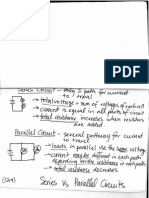 Series Circuit - only 1 path for current
to travel
→ total voltage - sum of voltages of each cell
→ current is equal in all parts of circuit
→ total resistance increases when resistors
are added
Parallel Circuit - several pathway for current
to travel
→ loads in parallel use the same voltage
→ current may be different in each path
depending on the resistance in each path
→ total resistance decreases
Series Vs. Parallel Circuits